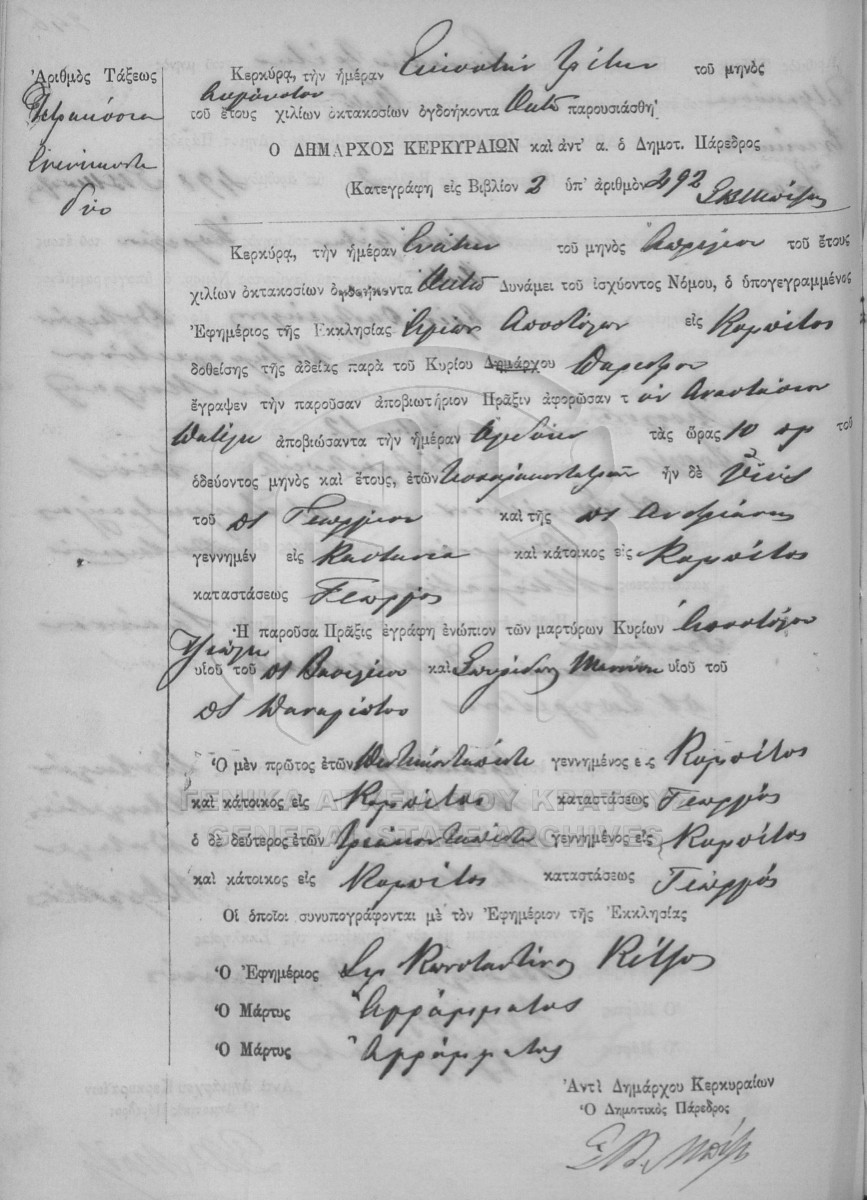 Ἀριθμὸς Τάξεως
Τετρακόσια
Ἐνενήκοντα
δύο
Κερκύρα, τὴν ἡμέραν Εἰκοστήν τρίτην τοῦ μηνὸς
Αὐγούστου
τοῦ ἔτους χιλίων ὀκτακοσίων ὀγδοήκοντα Ὀκτώ παρουσιάσθη
Ὁ ΔΗΜΑΡΧΟΣ ΚΕΡΚΥΡΑΙΩΝ καὶ ἀντ' α. ὁ Δημοτ. Πάρεδρος
(Κατεγράφη εἰς Βιβλίον 2 ὑπ' ἀριθμὸν 492
Κερκύρα, τὴν ἡμέραν Ἐνάτην τοῦ μηνὸς Ἀπριλίου τοῦ ἔτους
χιλίων ὀκτακοσίων ὀγδοήκοντα Ὀκτώ Δυνάμει τοῦ ἰσχύοντος Νόμου, ὁ ὑπογεγραμμένος
Ἐφημέριος τῆς Ἐκκλησίας Ἁγίων Ἀποστόλων εἰς Καρπίτος
δοθείσης τῆς ἀδείας παρὰ τοῦ Κυρίου Δημάρχου Παρέδρου
ἔγραψεν τὴν παροῦσαν ἀποβιωτήριον Πρᾶξιν ἀφορῶσαν τ ον Αναστάσιον
ἀποβιώσαντα τὴν ἡμέραν Ὀγδόην τὰς ὥρας 10 πμ τοῦ
ὁδεύοντος μηνὸς καὶ ἔτους, ἐτῶν ἦν δὲ Υἱός
τοῦ ποτ Γεωργίου καὶ τῆς ποτ Ανδριάνης
γεννημέν εἰς καὶ κάτοικος εἰς Καρπίτος
καταστάσεως Γεωργός
Ἡ παροῦσα Πρᾶξις ἐγράφη ἐνώπιον τῶν μαρτύρων Κυρίων Ἀποστόλου
υἱοῦ τοῦ ποτ Βασιλείου καὶ Σπυρίδων υἱοῦ τοῦ
ποτ Παναγιώτου
Ὁ μὲν πρῶτος ἐτῶν γεννημένος εἰς Καρπίτος
καὶ κάτοικος εἰς Καρπίτος καταστάσεως Γεωργός
ὁ δὲ δεύτερος ἐτῶν γεννημένος εἰς Καρπίτος
καὶ κάτοικος εἰς Καρπίτος καταστάσεως Γεωργός
ΓΕΝΙΚΑ ΑΡΧΕΙΑ ΤΟΥ ΚΡΑΤΟΥΣ
GENERAL STATE ARCHIVES
Οἱ ὁποῖοι συνυπογράφονται μὲ τὸν Ἐφημέριον τῆς Ἐκκλησίας
Ὁ Ἐφημέριος Κωνσταντῖνος Κέτζος
Ὁ Μάρτυς Ἀγράμματος
Ὁ Μάρτυς Ἀγράμματος
Ἀντὶ Δημάρχου Κερκυραίων
Ὁ Δημοτικὸς Πάρεδρος